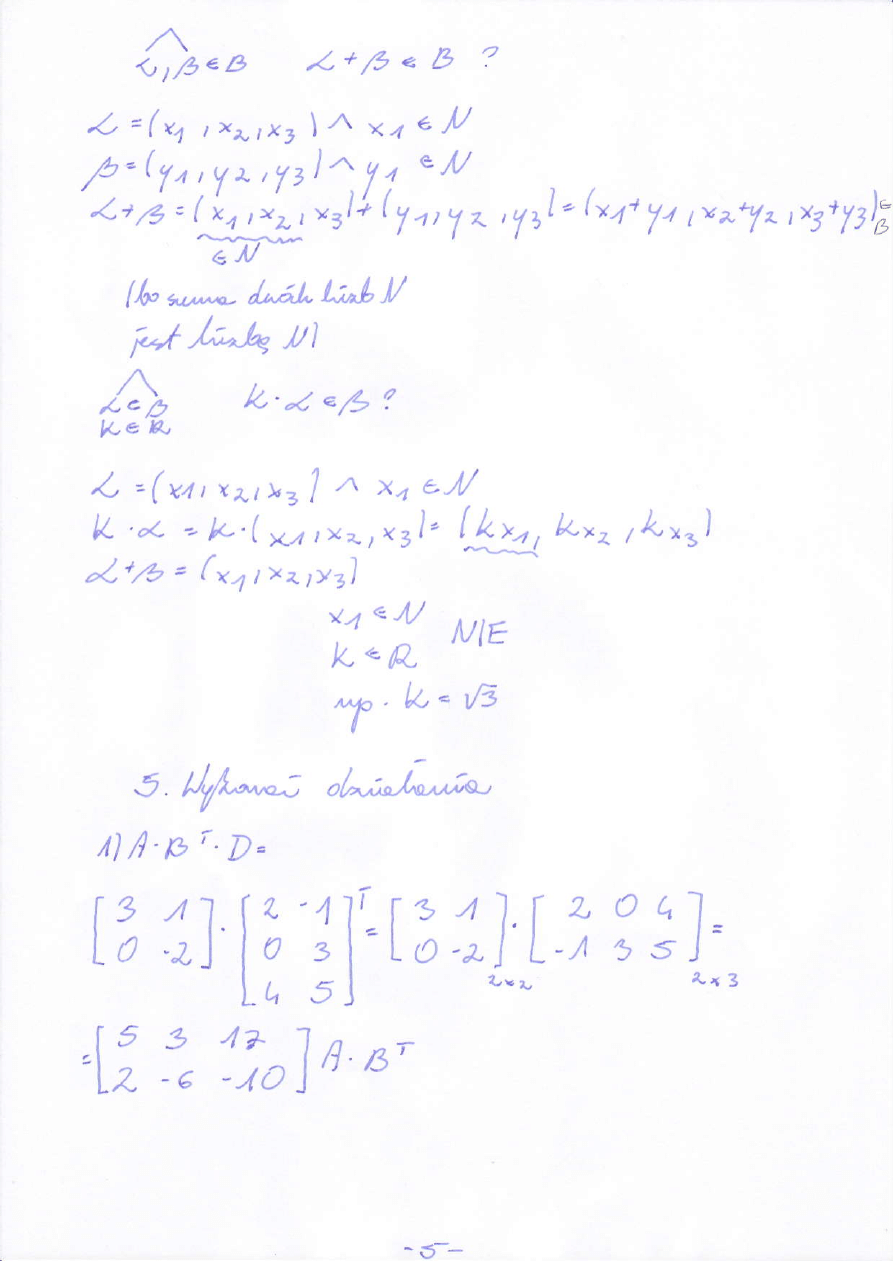 ⋀
α, β ∈ B    α + β ∈ B ?
α = (x1, x2, x3) ∧ x1 ∈ N
β = (y1, y2, y3) ∧ y1 ∈ N
α + β = (x1, x2, x3) + (y1, y2, y3) = (x1 + y1, x2 + y2, x3 + y3) ∈ B
∈ N
(bo suma dwóch liczb N
jest liczbą N)
⋀
α ∈ B    k · α ∈ β ?
k ∈ R
α = (x1, x2, x3) ∧ x1 ∈ N
k · α = k · (x1, x2, x3) = (kx1, kx2, kx3)
α + β = (x1, x2, x3)
x1 ∈ N
k ∈ R    NIE
np. k = √3
5. Wykonać działania
1) A · B^T · D =
[3 1; 0 -2] · [2 -1; 0 3; 4 5]^T = [3 1; 0 -2] 2x2 · [2 0 4; -1 3 5] 2x3 =
= [5 3 17; 2 -6 -10] A · B^T
-5-